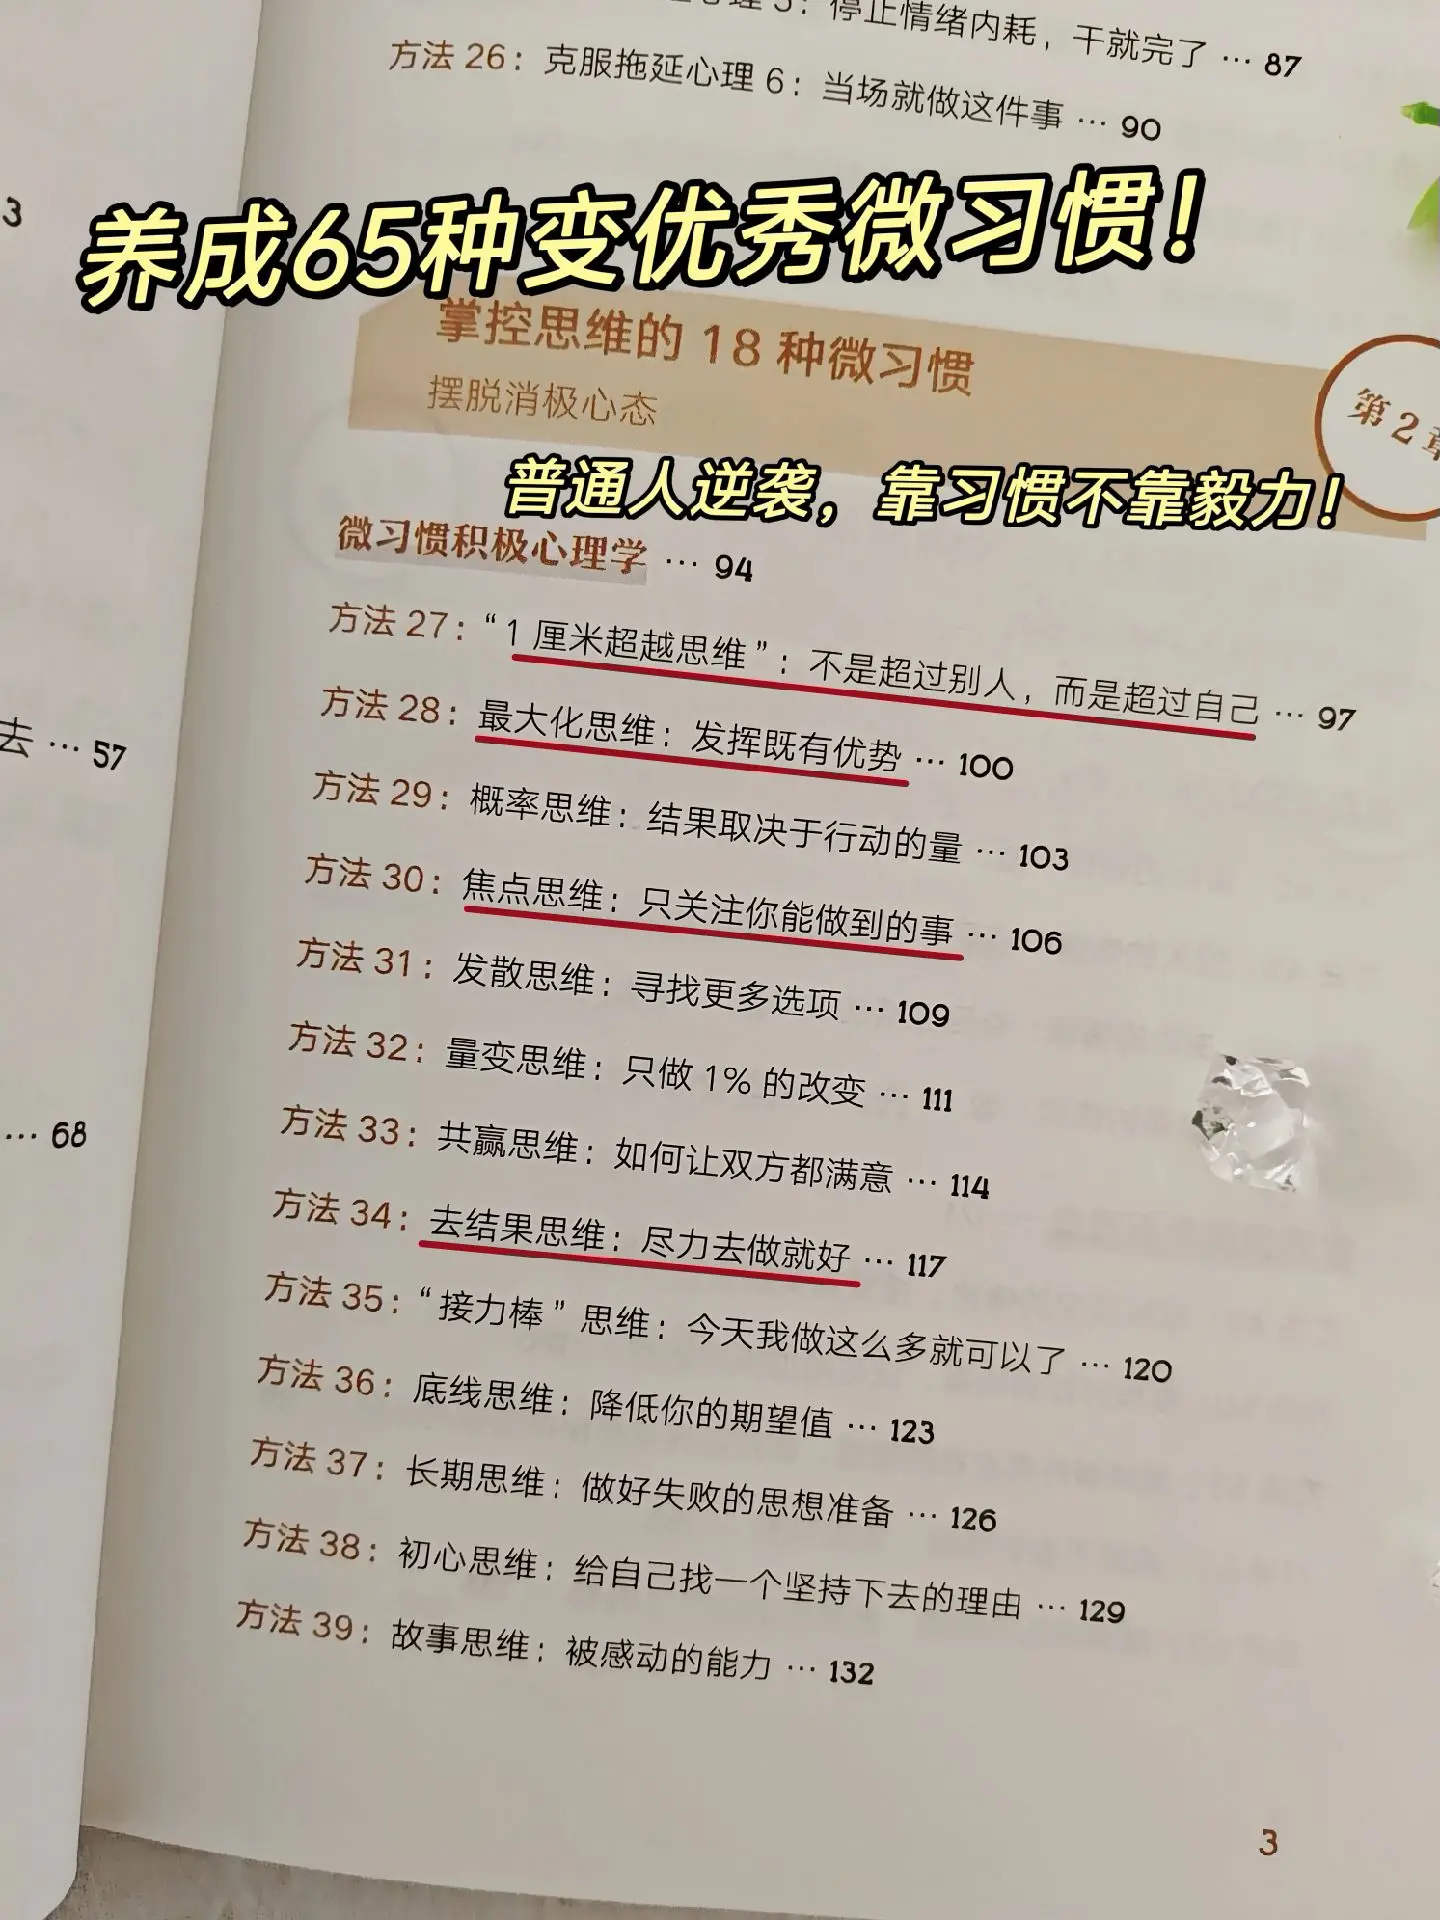 心理 5：停止情绪内耗，干就完了 … 87
方法 26：克服拖延心理 6：当场就做这件事 … 90
3
养成65种变优秀微习惯！
掌控思维的 18 种微习惯
摆脱消极心态
第 2 章
普通人逆袭，靠习惯不靠毅力！
微习惯积极心理学 … 94
方法 27：“1 厘米超越思维”：不是超过别人，而是超过自己 … 97
方法 28：最大化思维：发挥既有优势 … 100
去 … 57
方法 29：概率思维：结果取决于行动的量 … 103
方法 30：焦点思维：只关注你能做到的事 … 106
方法 31：发散思维：寻找更多选项 … 109
方法 32：量变思维：只做 1% 的改变 … 111
… 68
方法 33：共赢思维：如何让双方都满意 … 114
方法 34：去结果思维：尽力去做就好 … 117
方法 35：“接力棒”思维：今天我做这么多就可以了 … 120
方法 36：底线思维：降低你的期望值 … 123
方法 37：长期思维：做好失败的思想准备 … 126
方法 38：初心思维：给自己找一个坚持下去的理由 … 129
方法 39：故事思维：被感动的能力 … 132
3